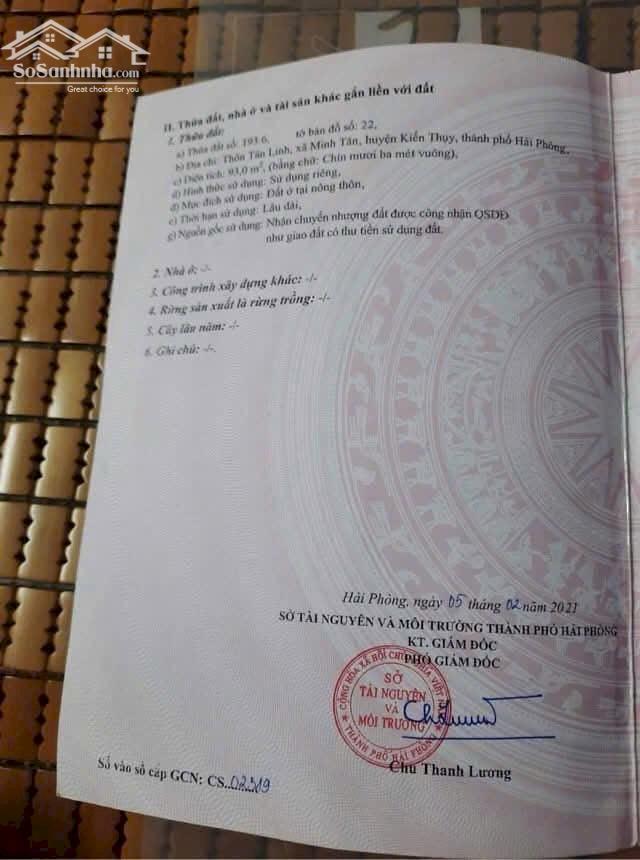 SoSanhnha.com
Great choice for you
II. Thửa đất, nhà ở và tài sản khác gắn liền với đất
1. Thửa đất:
a) Thửa đất số: 193.6, tờ bản đồ số: 22,
b) Địa chỉ: Thôn Tân Linh, xã Minh Tân, huyện Kiến Thụy, thành phố Hải Phòng,
c) Diện tích: 93,0 m², (bằng chữ: Chín mươi ba mét vuông),
d) Hình thức sử dụng: Sử dụng riêng,
đ) Mục đích sử dụng: Đất ở tại nông thôn,
e) Thời hạn sử dụng: Lâu dài,
g) Nguồn gốc sử dụng: Nhận chuyển nhượng đất được công nhận QSDĐ
như giao đất có thu tiền sử dụng đất.
2. Nhà ở: -/-
3. Công trình xây dựng khác: -/-
4. Rừng sản xuất là rừng trồng: -/-
5. Cây lâu năm: -/-
6. Ghi chú: -/-.
Hải Phòng, ngày 05 tháng 02 năm 2021
SỞ TÀI NGUYÊN VÀ MÔI TRƯỜNG THÀNH PHỐ HẢI PHÒNG
KT. GIÁM ĐỐC
PHÓ GIÁM ĐỐC
CỘNG HÒA XÃ HỘI CHỦ NGHĨA VIỆT NAM
SỞ
TÀI NGUYÊN
VÀ
MÔI TRƯỜNG
THÀNH PHỐ HẢI PHÒNG
Chu Thanh Lương
Số vào sổ cấp GCN: CS..02519